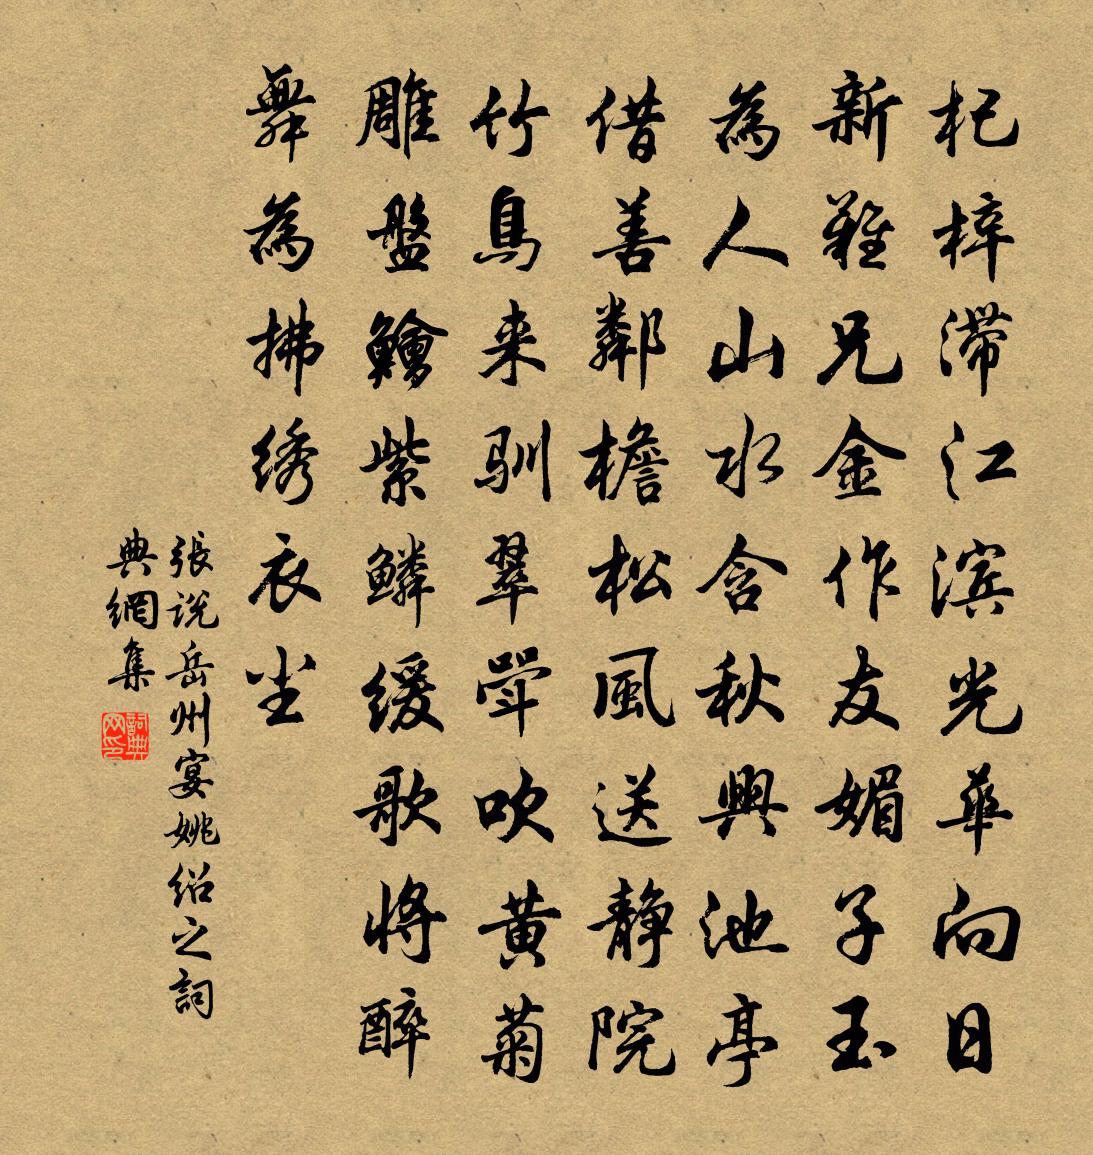 杞梓滞江滨光華向日
新難兄金作友媚子玉
為人山水含秋興池亭
借善鄰檐松風送静院
竹鳥来驯翠斝吹黄菊
雕盤鱠紫鱗缓歌将醉
舞為拂绣衣尘
張说岳州宴姚绍之詞
典網集
詞典网印